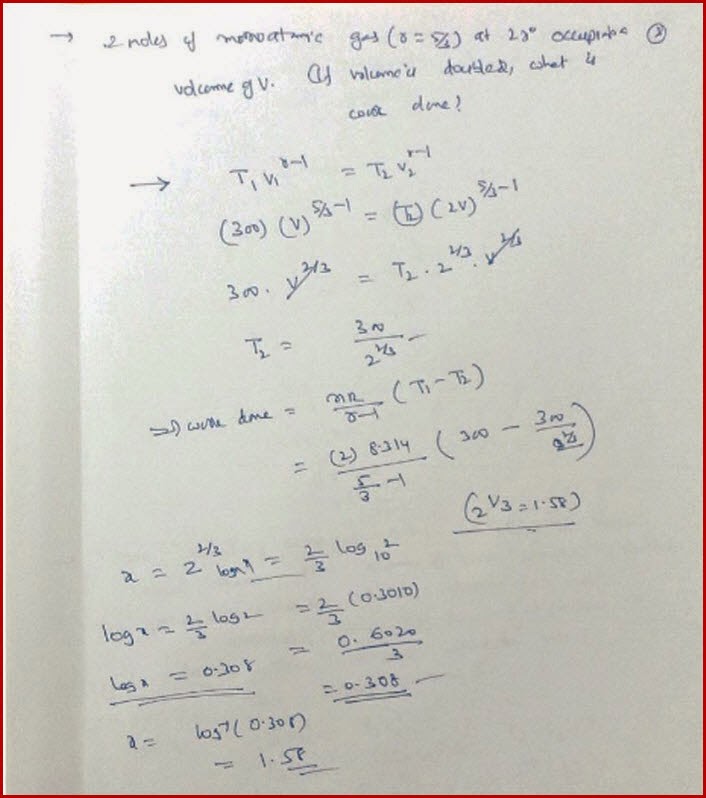 → 2 moles of monoatomic gas (γ = 5/3) at 27° occupies a ②
volume of V. If volume is doubled, what is
work done?
→ T₁ V₁^γ-1 = T₂ V₂^γ-1
(300) (V)^5/3-1 = (T₂) (2V)^5/3-1
300 · V^2/3 = T₂ · 2^2/3 · V^2/3
T₂ = 300/2^2/3
⇒ work done = nR/γ-1 (T₁ - T₂)
= (2) 8.314/5/3 -1 (300 - 300/2^2/3)
(2^1/3 = 1.58)
x = 2^2/3 log x = 2/3 log₁₀ 2
log x = 2/3 log 2 = 2/3 (0.3010)
log x = 0.308 = 0.6020/3
= 0.308
x = log⁻¹ (0.308)
= 1.58